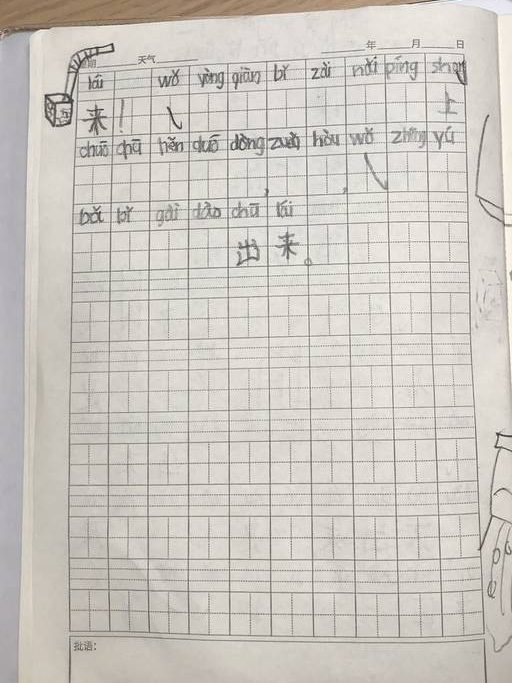 天气
年 月 日
lái wǒ yòng qiān bǐ zài nǎi píng shang
来! 上
chuō chū hěn duō dòng zuì hòu wǒ zhōng yú
, ,
bǎ bǐ gài dào chū lái
出来。
批语: